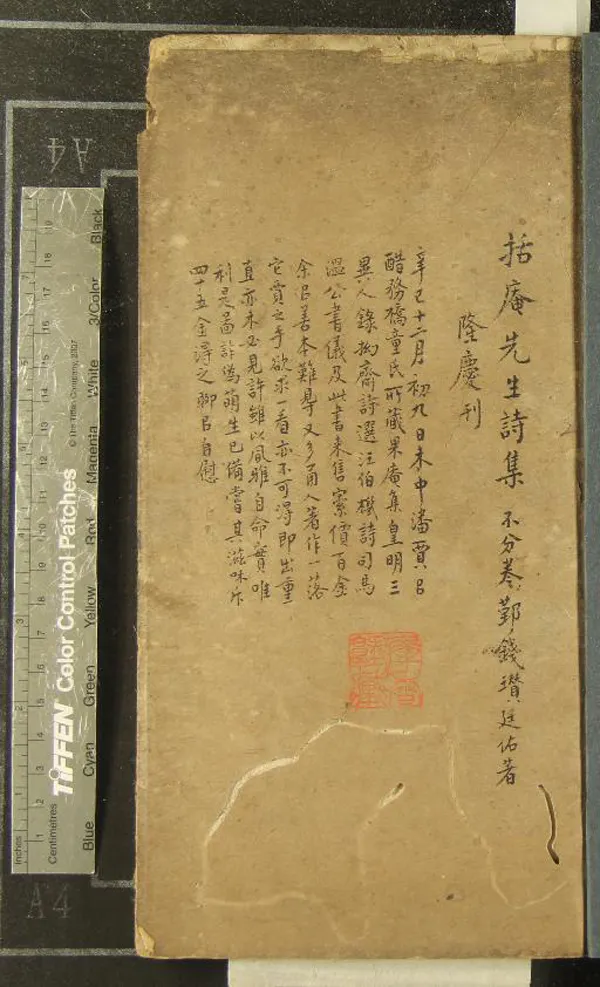 括庵先生詩集 不分卷 鄞錢瓚廷佑著
隆慶刊
辛巳十二月初九日朱中潘賈㠯
醋務橋童氏所藏果庵集皇明三
異人錄拗齋詩選汪伯機詩司馬
溫公書儀及此書来售索價百金
余㠯善本難得又多甬人著作一落
它賈之手欲求一看亦不可得即出重
直亦未必見許雖以風雅自命實唯
利是啚詐偽萌生已備嘗其滋味
四十五金得之聊㠯自慰
A4
A4
TIFFEN Color Control Patches
© The Tiffen Company, 2007
Blue Cyan Green Yellow Red Magenta White 3/Color Black
Inches 1 2 3 4 5 6 7
Centimetres 1 2 3 4 5 6 7 8 9 10 11 12 13 14 15 16 17 18 19